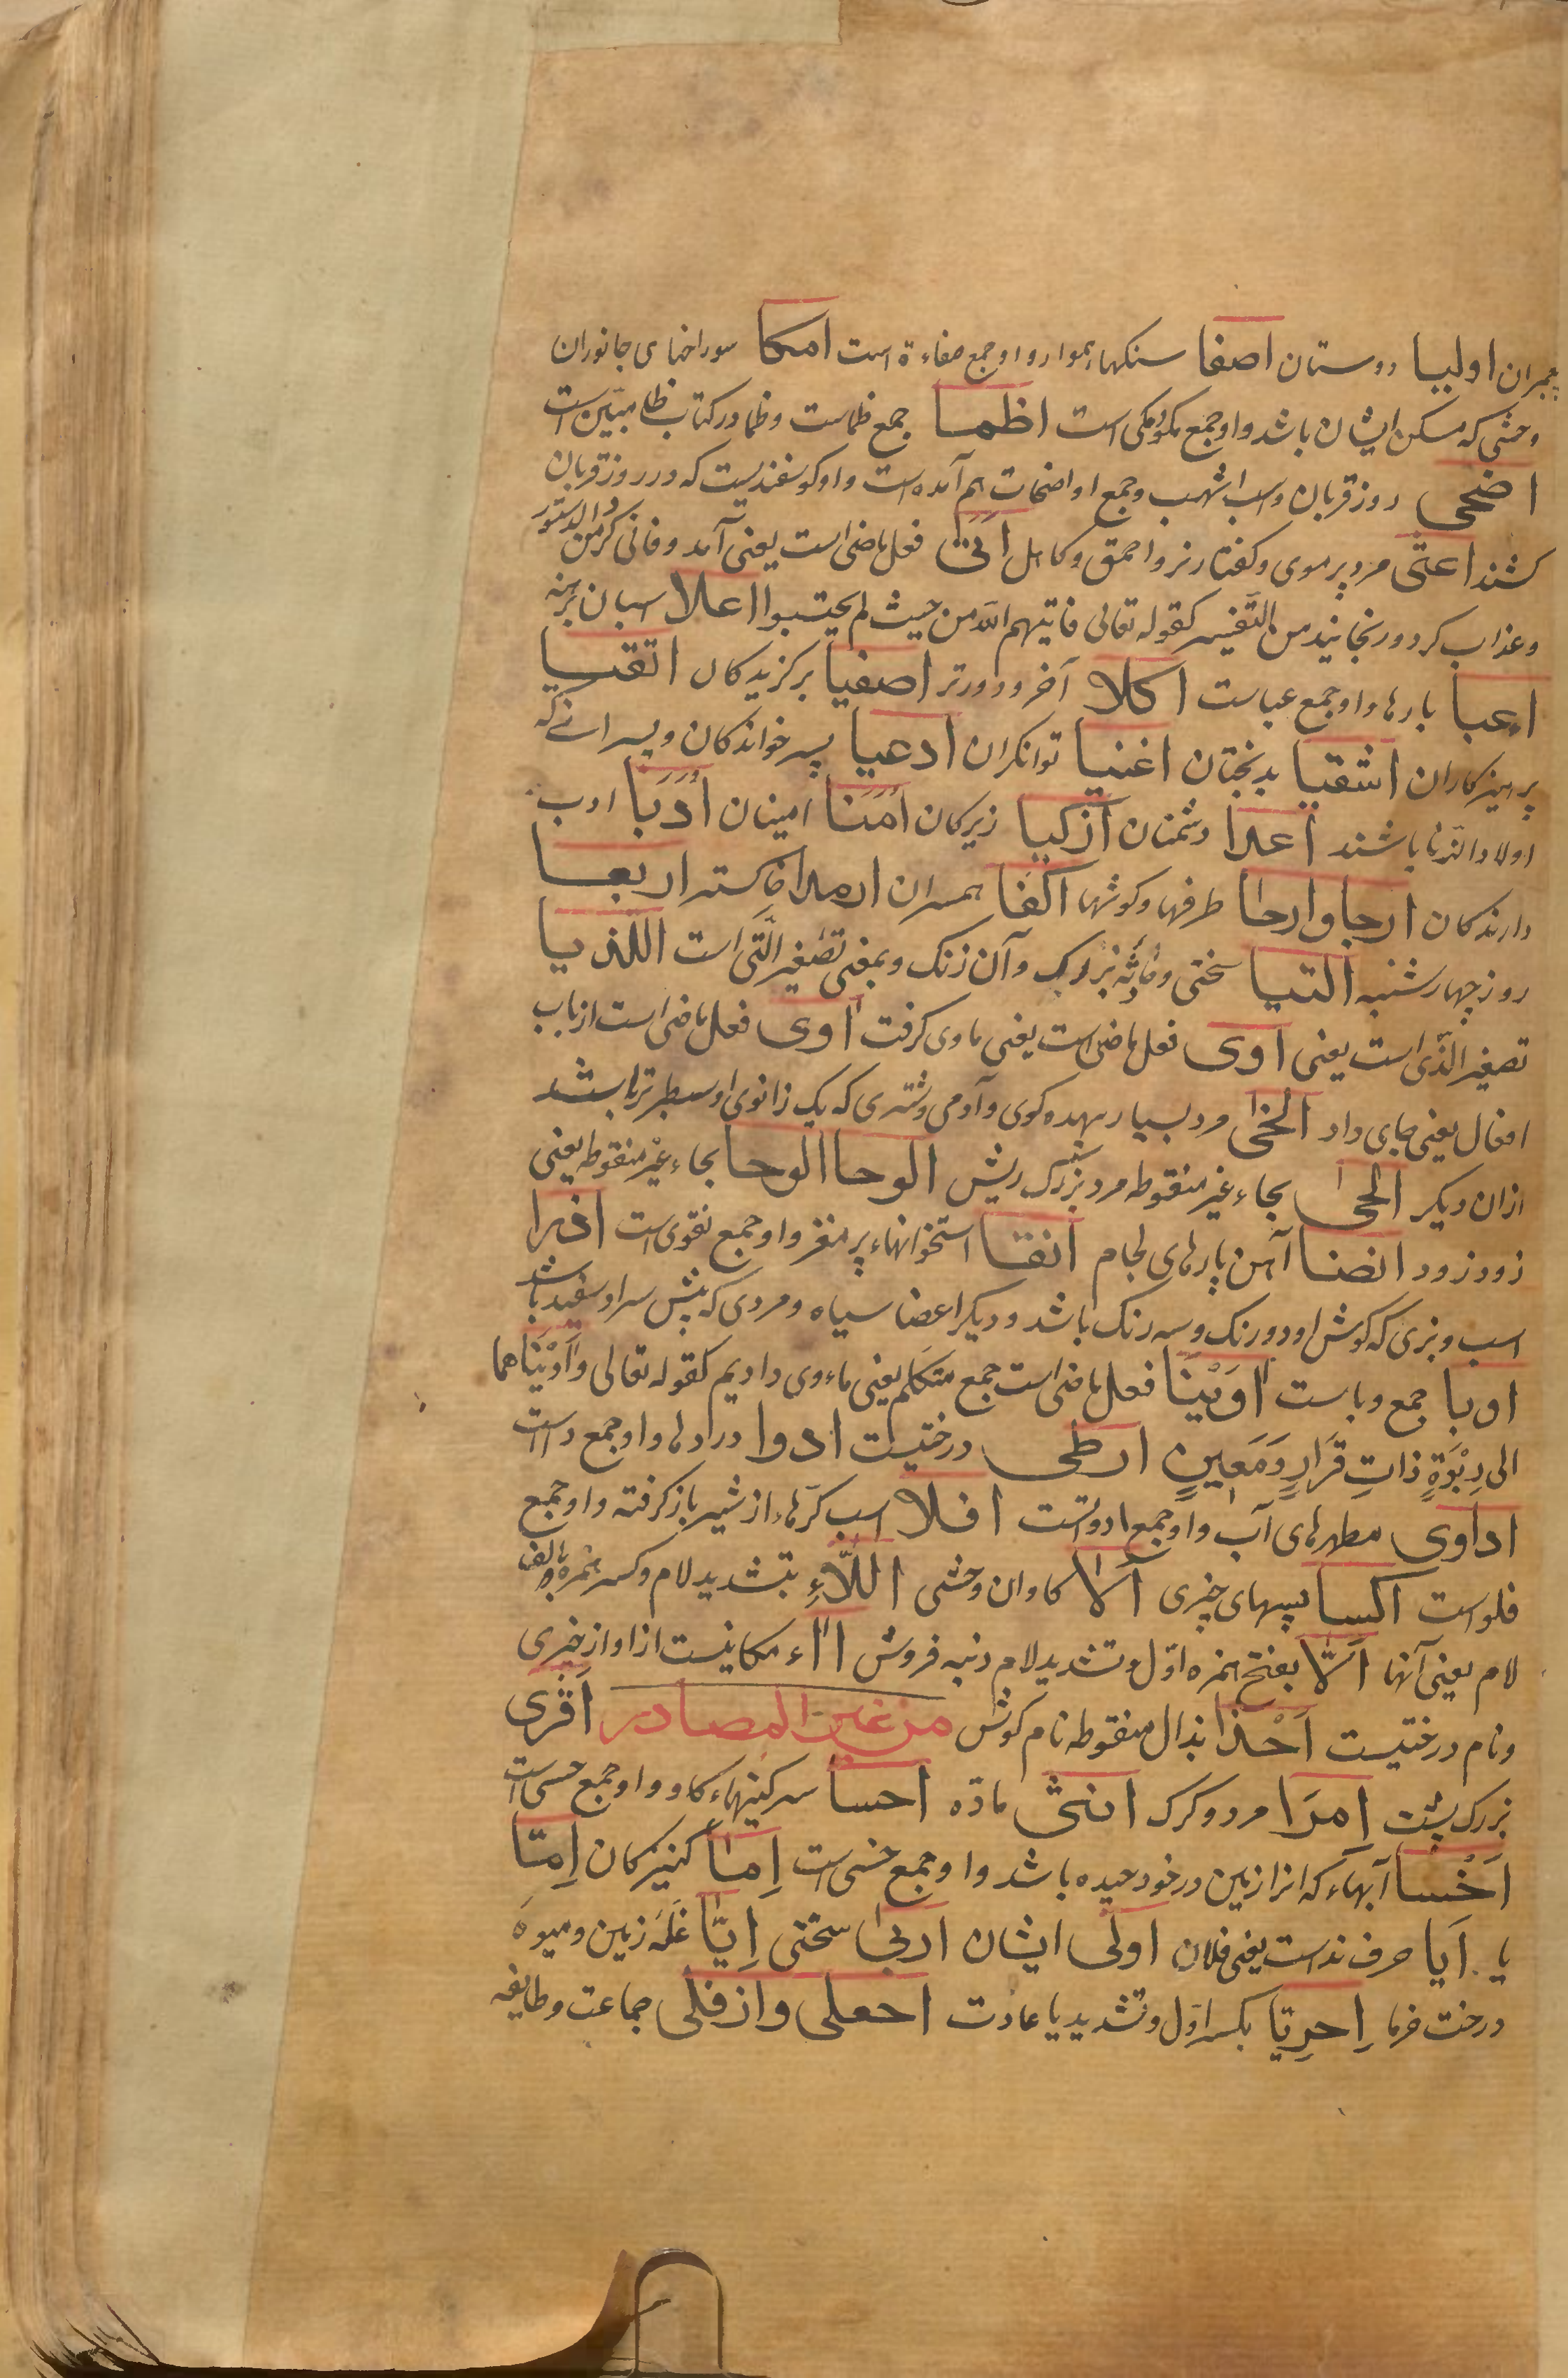 پیمبران اولیا دوستان اصفا سنکهاء هموار و او جمع صفاءة است امکا سوراخهای جانوران
وحشی که مسکن ایشان باشد و او جمع مکو و مکی است اظما جمع ظماست و ظما در کتاب ظا مبیّن است
اضحی روز قربان و اسب اشهب و جمع او اضحات هم آمده است و او کوسفندیست که در روز قربان
کشند اعثی مرد پر موی و کفتار نر و احمق و کاهل اتی فعل ماضی است یعنی آمد و فانی کرد من الدستور
و عذاب کرد و رنجانید من التفسیر کقوله تعالی فاتیهم الله من حیث لم یحتسبوا اعلا اسبان برهنه
اعبا بارها و او جمع عباست اکلا آخر و دورتر اصفیا برکزیدکان اتقیا
پرهیزکاران اشقیا بدبختان اغنیا توانکران ادعیا پسر خواندکان و پسرانی که
اولاد الزنا باشند اعدا دشمنان اذکیا زیرکان اُمَنا امینان اُدَبا ادب
دارندکان ارجا و ارحا طرفها و کوشها اکفا همسران ارمدا خاکستر اربعا
روز چهارشنبه التیا سختی و حادثه بزرک و آن زنک و بمعنی تصغیر الّتی است اللذیا
تصغیر الّذی است یعنی اوی فعل ماضی است یعنی ماوی کرفت اوی فعل ماضی است از باب
افعال یعنی جای داد الخی مرد بسیار بیهده کوی و آدمی و شتری که یک زانوی او سطبرتر باشد
از ان دیکر الحی بحاء غیر منقوطه مرد بزرک ریش الوحا الوحا بحاء غیر منقوطه یعنی
زود زود انضا آهن پارهای لجام انقا استخوانهاء پر مغز و او جمع نقوی است اذرا
اسب و بزی که کوش او دو رنک و سه رنک باشد و دیکر اعضا سیاه و مردی که پیش سر او سفید باشد
اوبا جمع وباست اوَیْنَا فعل ماضی است جمع متکلم یعنی ماءوی دادیم کقوله تعالی و آوَیْنَاهما
الی رَبْوَةٍ ذاتِ قَرَارٍ وَمَعِینٍ ارطی درختیست ادوا دردها و او جمع داست
اداوی مطهرهای آب و او جمع ادواتست افلا اسب کرهاء از شیر باز کرفته و او جمع
فلو است اکسا پسهای چیزی آلا کاوان وحشی اللّاءِ بتشدید لام و کسر همزه و الف
لام یعنی آنها الّا بفتح همزه اوّل و تشدید لام دنبه فروش ااء مکانیست از او از چیزی
و نام درختیست اَحْذا بذال منقوطه نام کوش من غیر المصادر اَقْری
بزرک پشت اِمرَا مرد و کرک انثی مادّه احسا سرکینهاء کاو و او جمع حسی است
اَخْسا آبهاء که انرا زمین در خود چیده باشد و او جمع خسی است اِمَا کنیزکان اِمّا
یا اَیا حرف نداست یعنی فلان اولی ایشان اربی سختی اِیّا غلّه زمین و میوه
درخت خرما اِحرِیّا بکسر اوّل و تشدید یا عادت احعلی و ازفلی جماعت و طایفه